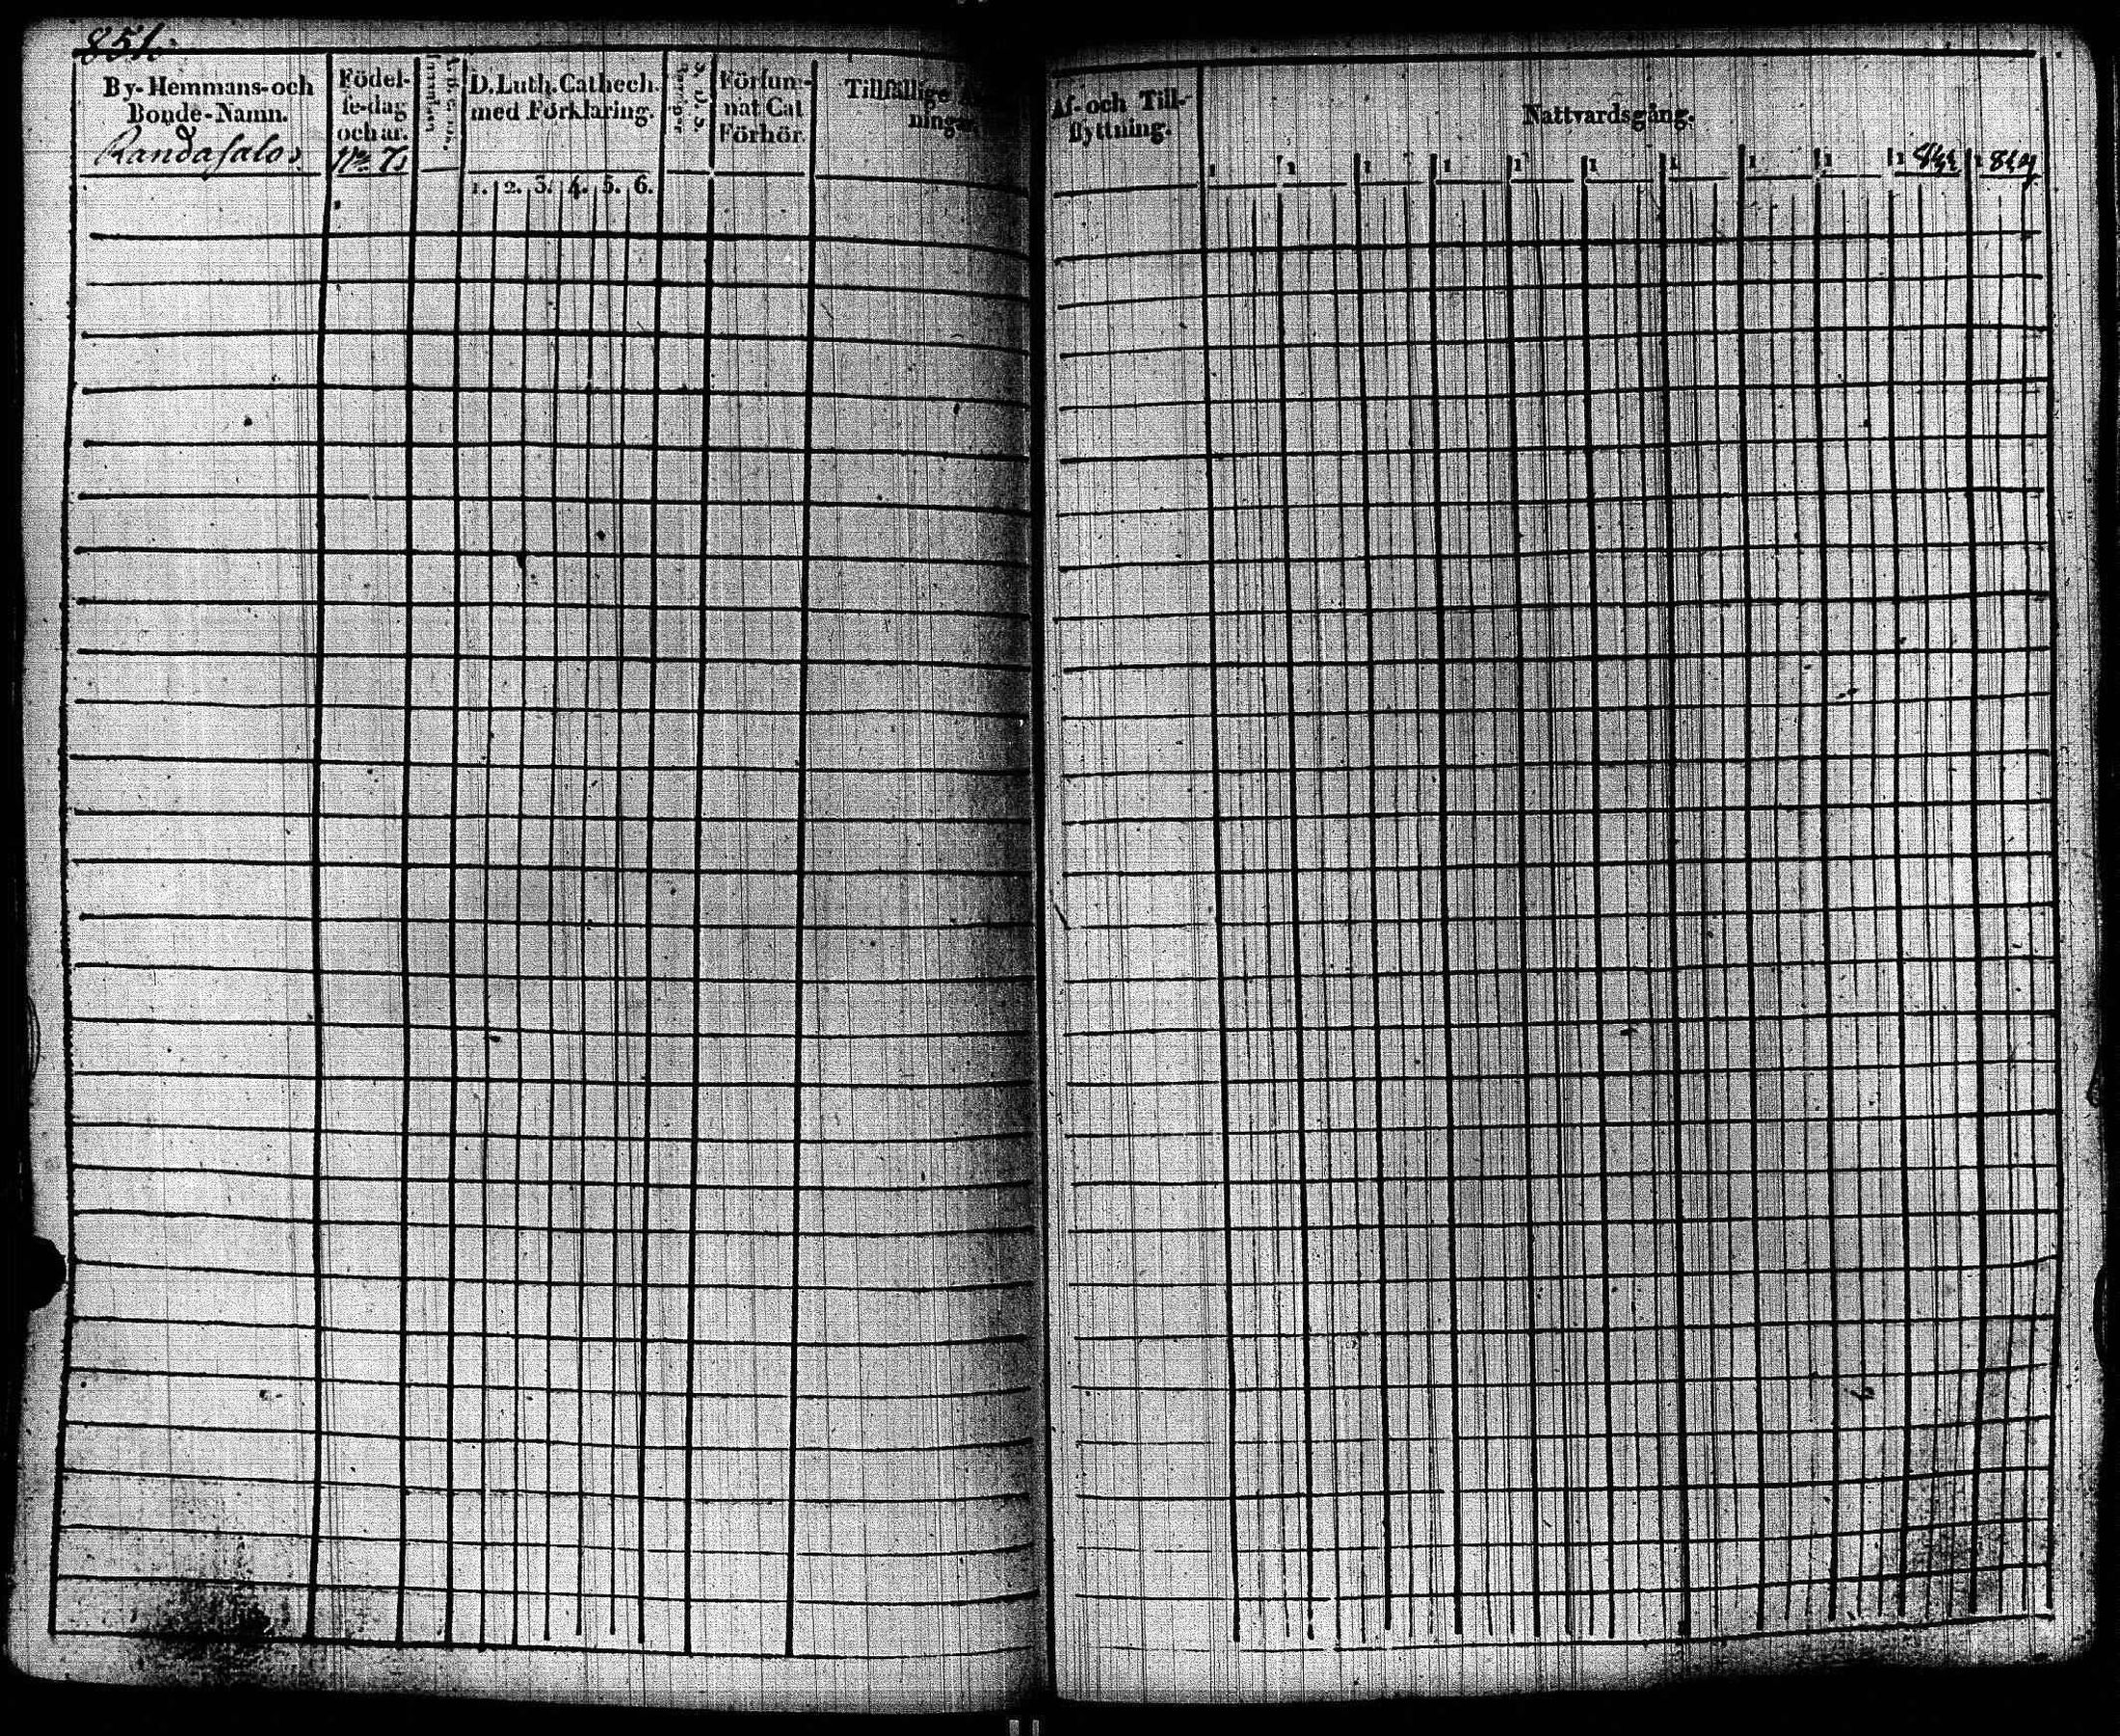 By-Hemmans-och
Bonde-Namn.
Randasalo
Födel-
se-dag
och år.
D. Luth. Cathech.
med Förklaring.
1. 2. 3. 4. 5. 6.
Försum-
nat Cat
Förhör.
Tillfällige
ningar
Af- och Till-
flyttning.
Nattvardsgång.
1 1 1 1 1 1 1 1 1 1 1849